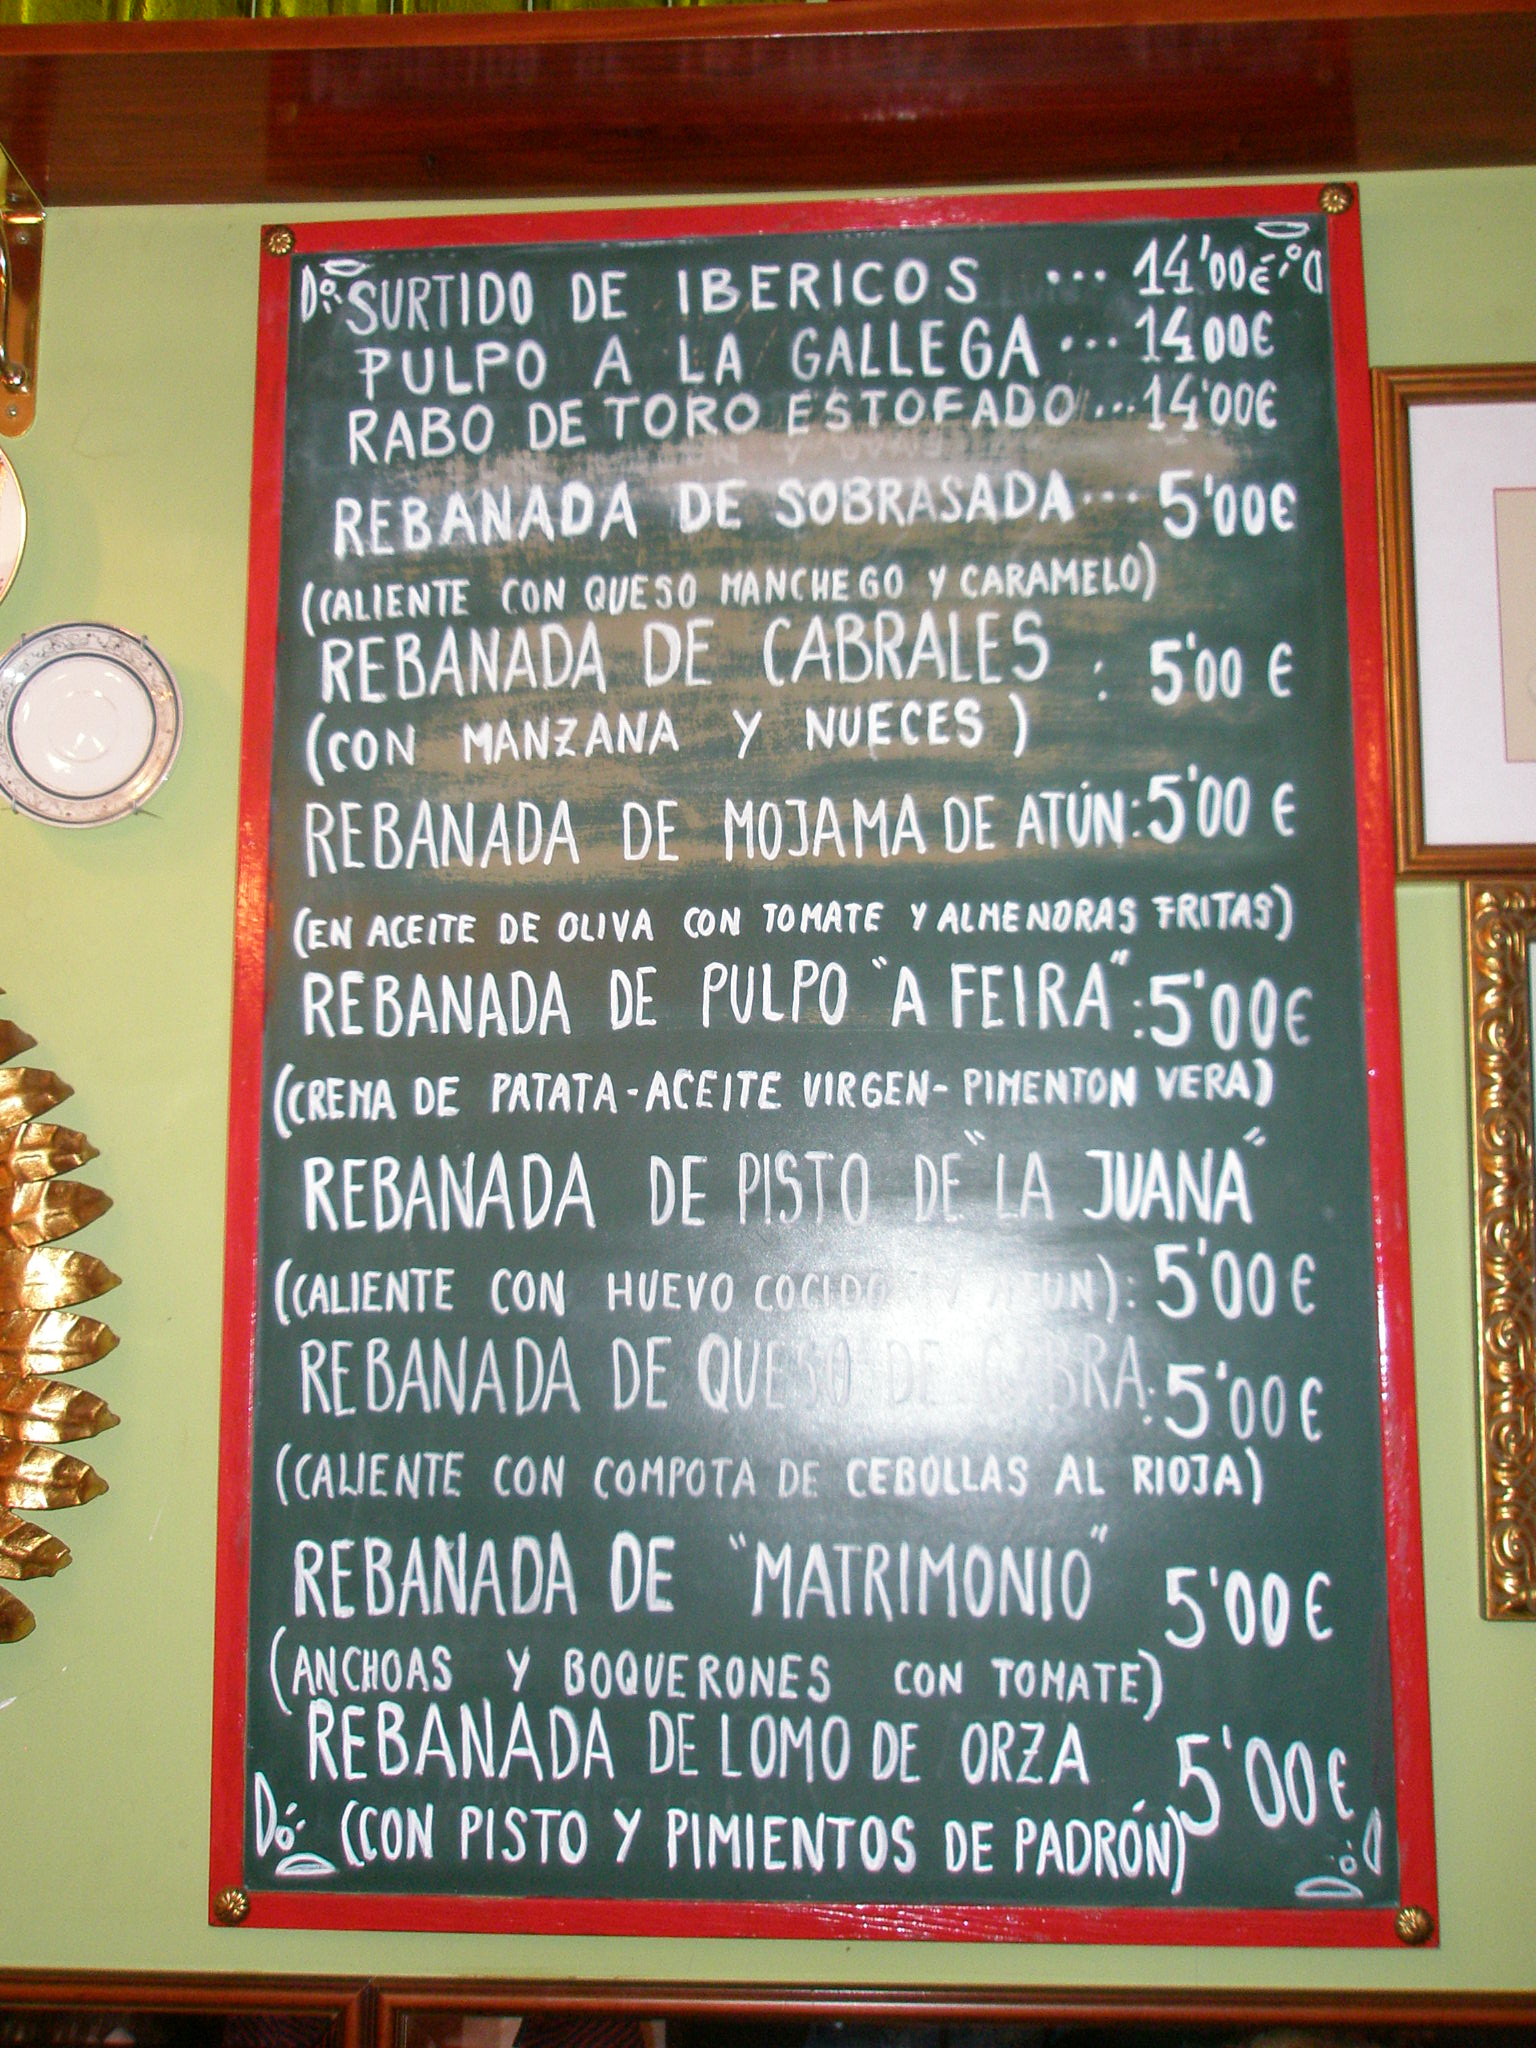 SURTIDO DE IBERICOS ... 14'00€
PULPO A LA GALLEGA ... 14'00€
RABO DE TORO ESTOFADO ... 14'00€
REBANADA DE SOBRASADA .... 5'00€
(CALIENTE CON QUESO MANCHEGO Y CARAMELO)
REBANADA DE CABRALES : 5'00 €
(CON MANZANA Y NUECES)
REBANADA DE MOJAMA DE ATÚN: 5'00 €
(EN ACEITE DE OLIVA CON TOMATE Y ALMENDRAS FRITAS)
REBANADA DE PULPO "A FEIRA": 5'00€
(CREMA DE PATATA-ACEITE VIRGEN-PIMENTON VERA)
REBANADA DE PISTO DE "LA JUANA"
(CALIENTE CON HUEVO COCIDO Y ATUN): 5'00€
REBANADA DE QUESO DE CABRA: 5'00€
(CALIENTE CON COMPOTA DE CEBOLLAS AL RIOJA)
REBANADA DE "MATRIMONIO" 5'00€
(ANCHOAS Y BOQUERONES CON TOMATE)
REBANADA DE LOMO DE ORZA 5'00€
(CON PISTO Y PIMIENTOS DE PADRÓN)